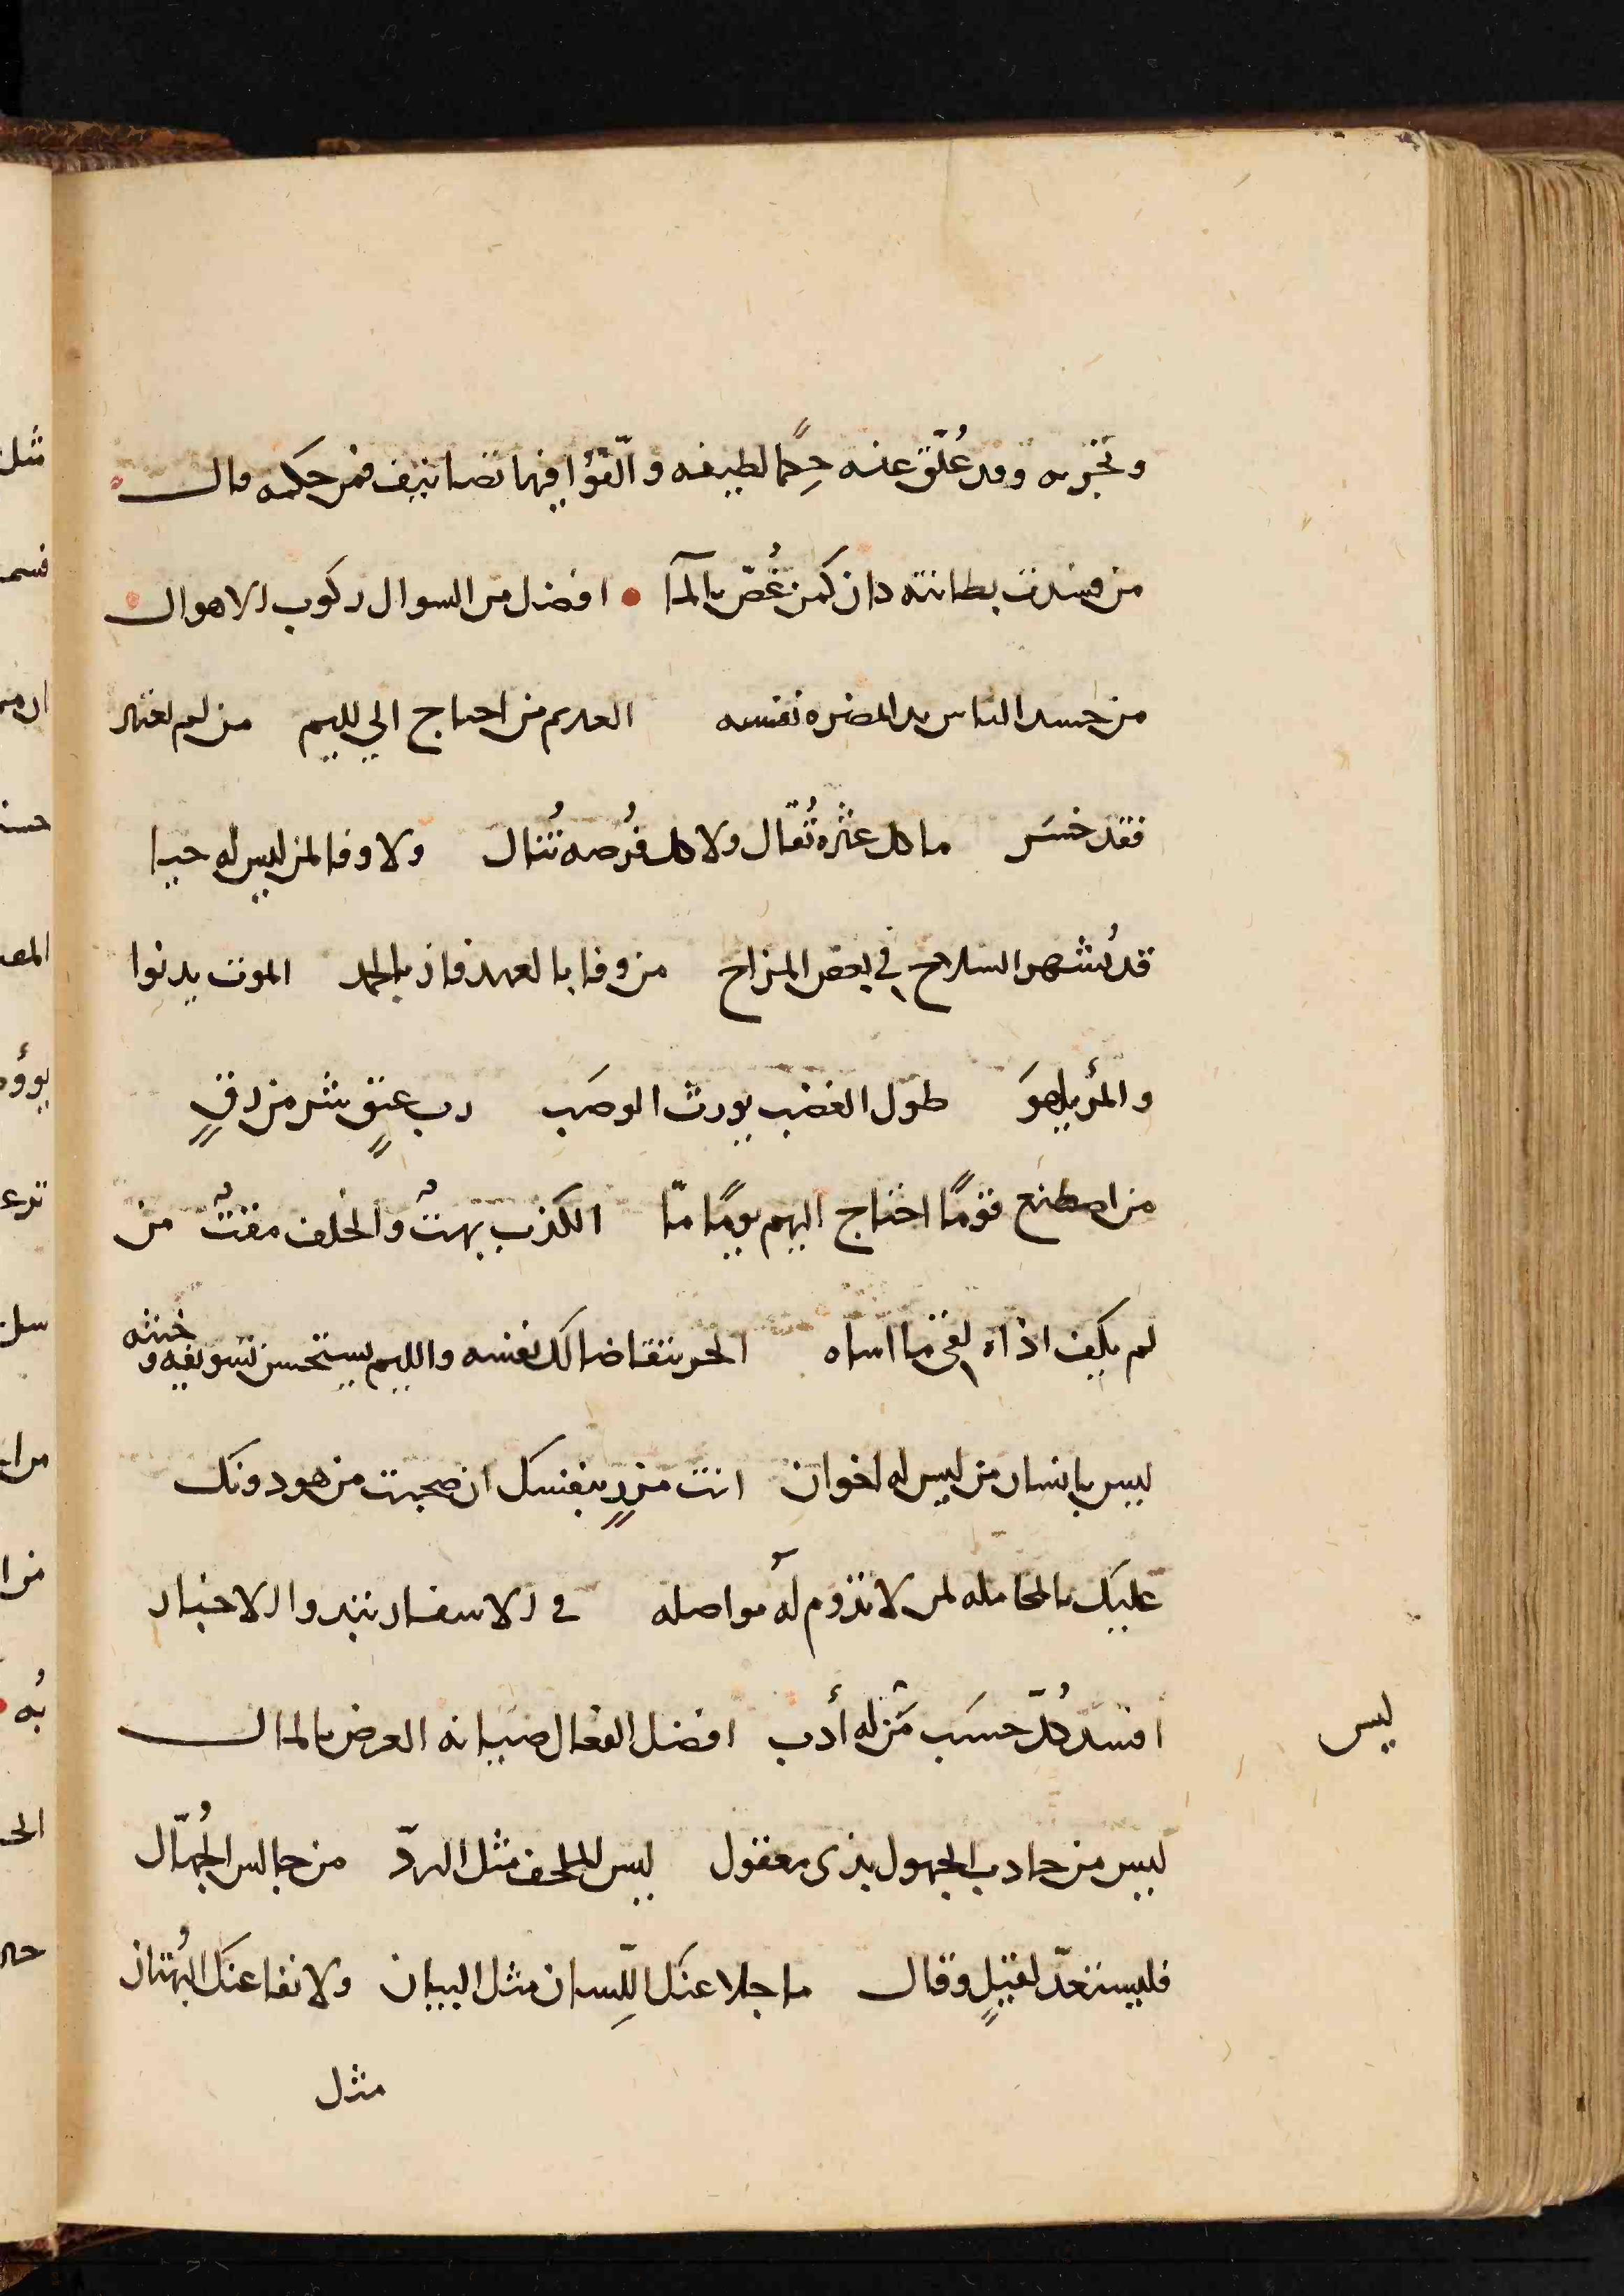 وتجربه وقد عُلّق عنه حِكمًا لطيفه والّفؤا فيها تصانيف فمن حكمه قال
من فسدت بطانته كان كمن غُصّ بالمآ • افضل من السوال ركوب الاهوال
من حسد الناس بدا بمضره نفسه العديم من احتاج الي لليم من لم يعتبر
فقد خسَر ما كل عثره تُقال ولا كل فُرصه تُنال ولا وفا لمن ليس له حيا
قد يُشهر السلاح في بعض المزاح من وفا بالعهد فاز بالحمد الموت يدنوا
والمرُ يلهوَ طول الغضب يورث الوصَب رب عتقٍ شر من رقٍ
من اصطنع قومًا احتاج اليهم يومًا مّا الكذب بهتٌ والخلف مقتٌ من
لم يكف اذاه لقي ما اساه الحر يتقاضا لك نفسه والليم يستحسن تسويفه وخبثه
ليس بانسان من ليس له اخوان انت مزرٍ بنفسك ان صحبت من هو دونك
عليك بالمجامله لمن لا تدوم له مواصله في الاسفار تبدوا الاخبار
ليس
افسد كُلّ حسَب مَن له أدب افضل الفعال صيانه العرض بالمال
ليس من حادب الجهول بذي معقول ليس للملحف مثل الردّ من جالس الجُهّال
فليستعدّ لقيلٍ وقال ما جلا عنك اللِّسان مثل البيان ولا نفا عنك البُهتان
مثل